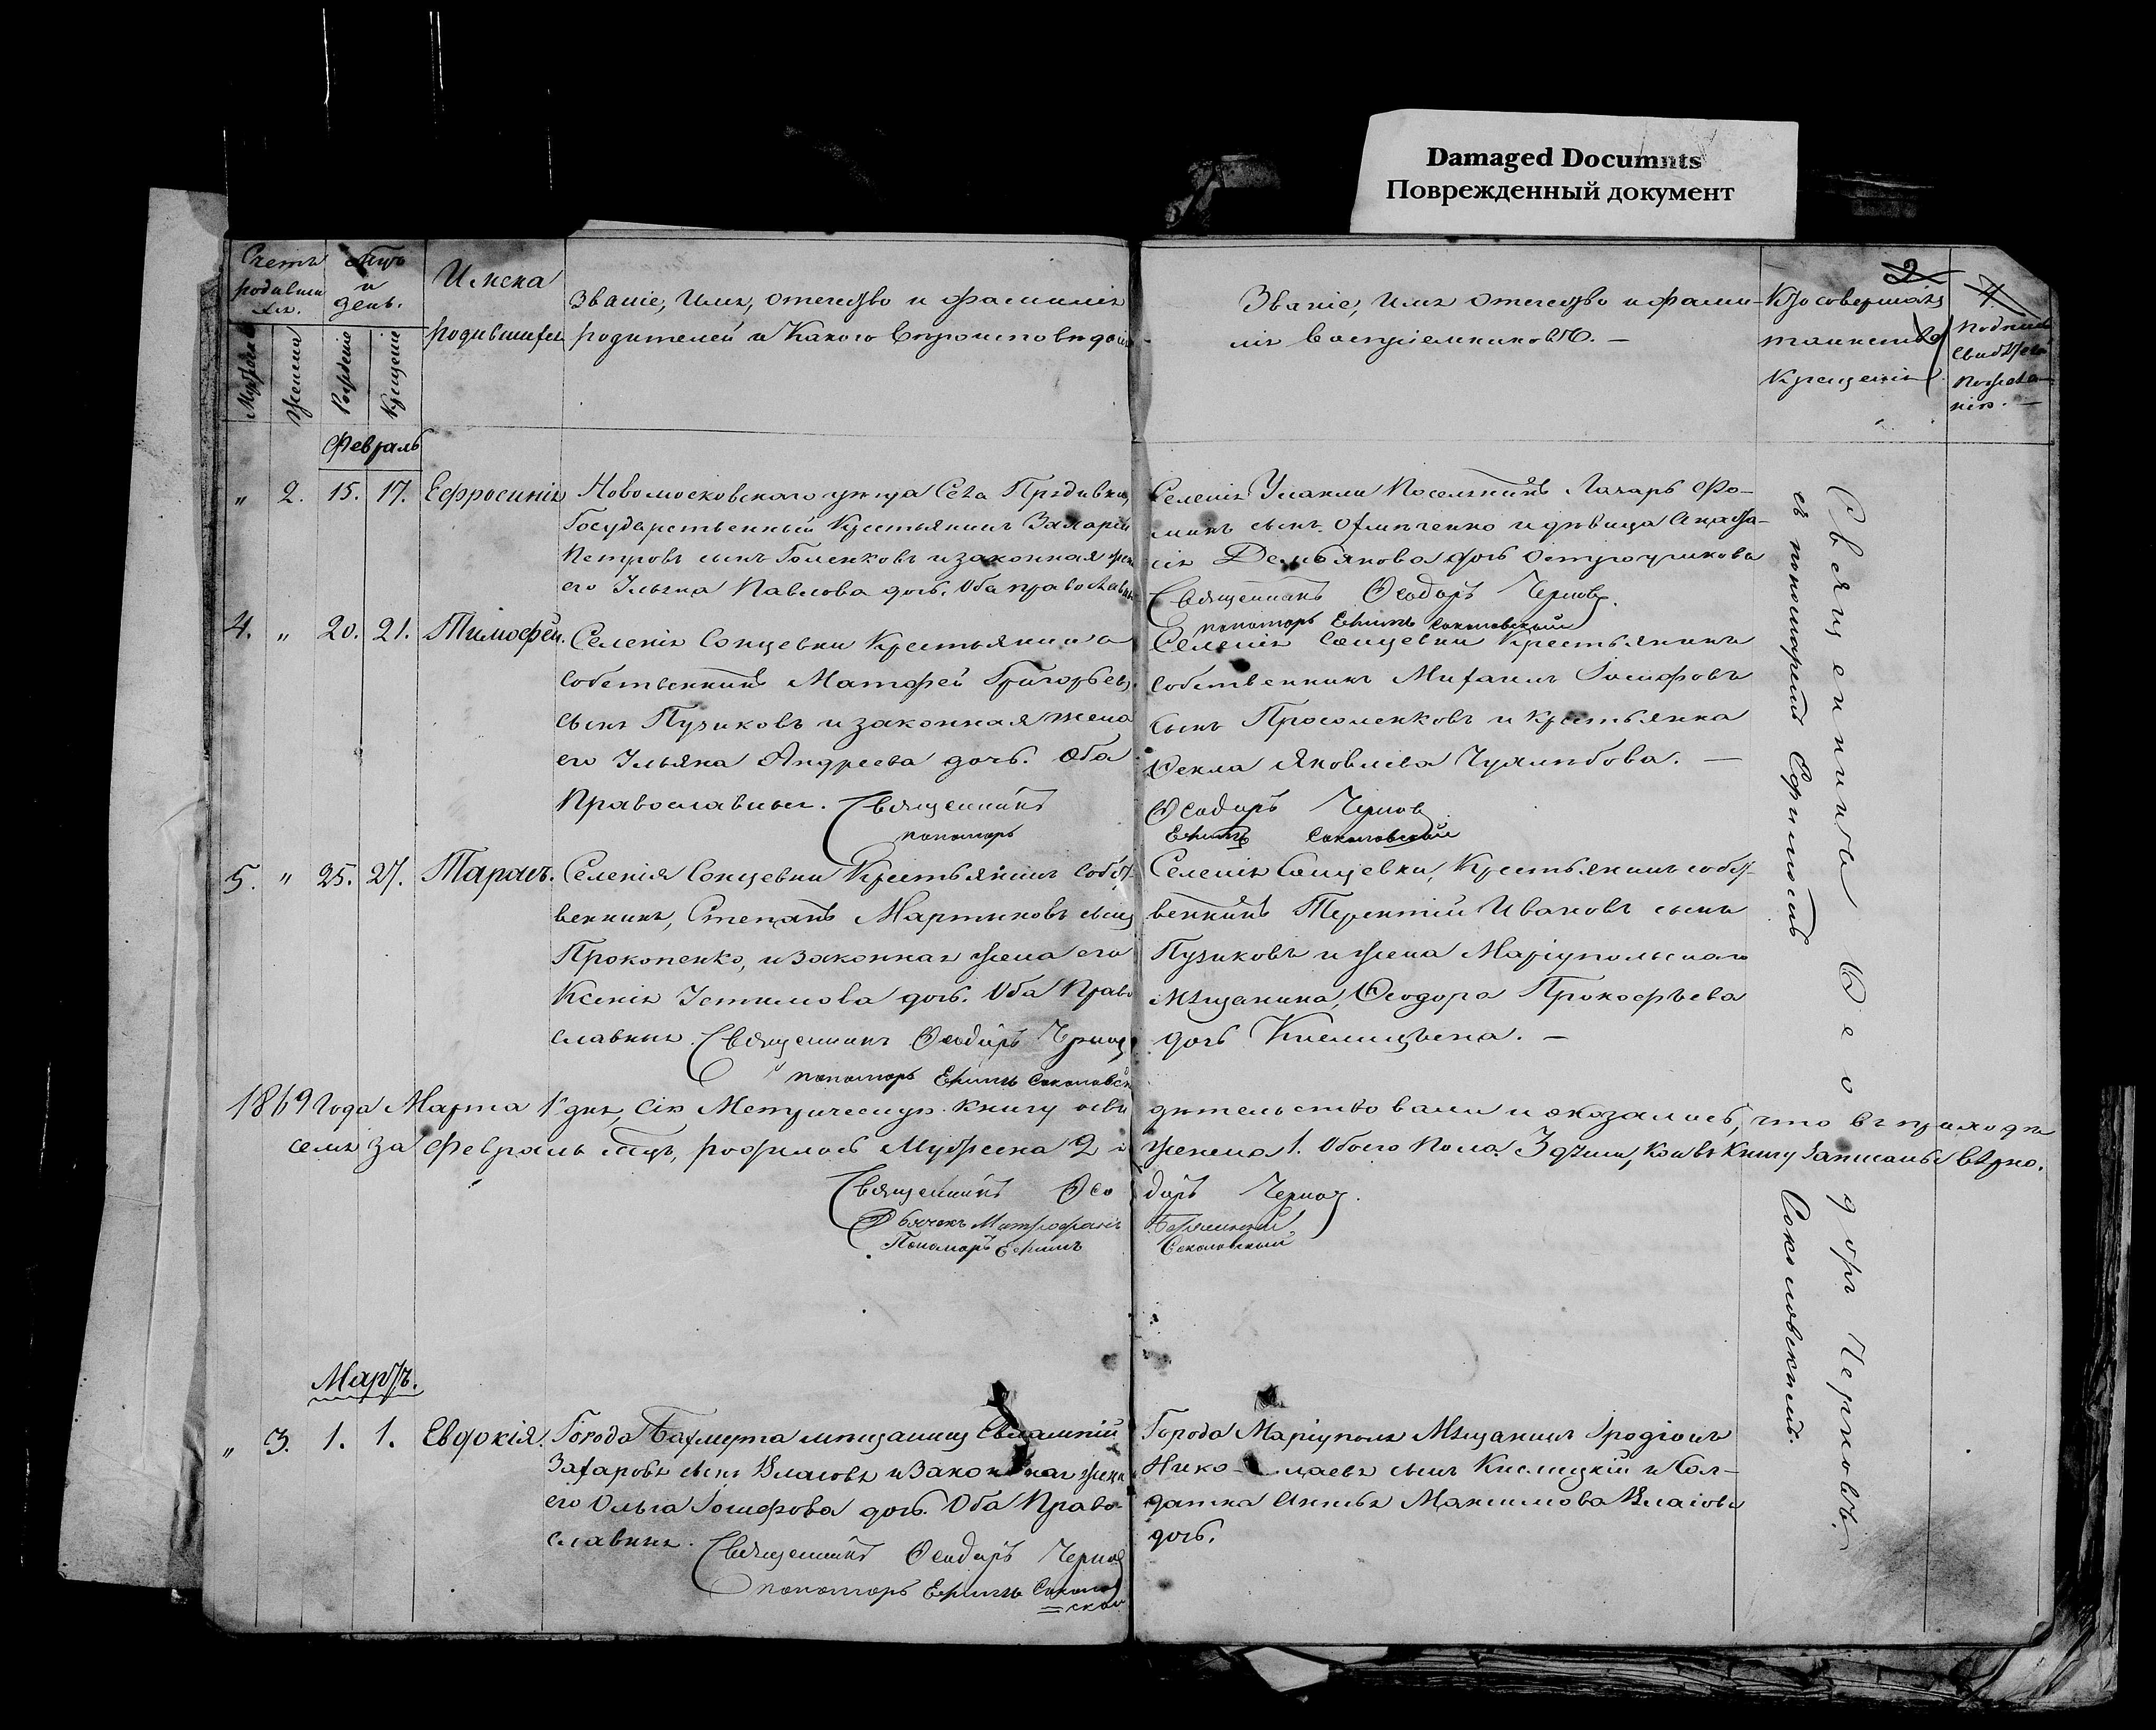 Damaged Documnts
Поврежденный документ
2
Счетъ родившихся.
Мцъ и день.
Имена родившихся
Званіе, имя, отечество и фамилія
родителей и какого вѣроисповѣданія
Званіе, имя отечество и фами-
лія воспріемниковъ. —
Кто совершалъ
таинство
крещенія
Женска
Рожденіе
Крещеніе
Февраль
„ 2. 15. 17. Ефросинія
Новомосковскаго уѣзда Села
Государственный Крестьянинъ Захарій
Петровъ сынъ Голенковъ и законная жена
его Ульяна Павлова дочь. Оба православные
Селенія Поселянинъ Лазарь Фо-
минъ сынъ и дѣвица Анаста-
сія Демьянова дочь
Священникъ Ѳеодоръ Черновъ.
пономарь Ефимъ Соколовскій
4. „ 20. 21. Тимофей.
Селенія Сонцевки Крестьянинъ
собственникъ Матфей Григорьевъ
сынъ Пузиковъ и законная жена
его Ульяна Андреева дочь. Оба
Православные. Священникъ
пономарь
Селенія Сонцевки Крестьянинъ
собственникъ Михаилъ Іосифовъ
сынъ Просоленковъ и крестьянка
Ѳекла Яковлева —
Ѳеодоръ Черновъ
Ефимъ Соколовскій
5. „ 25. 27. Тарасъ.
Селенія Сонцевки Крестьянинъ собст-
венникъ, Степанъ Мартиновъ сынъ
Прокопенко, и законная жена его
Ксенія Устимова дочь. Оба Право
славные. Священникъ Ѳеодоръ Черновъ
пономарь Ефимъ Соколовск
Селенія Сонцевки, Крестьянинъ собст-
венникъ Терентій Ивановъ сынъ
Пузиковъ и жена Маріупольскаго
Мѣщанина, Ѳеодора Прокофьева
дочь —
1869 Года Марта 1 дня, сію Метрическую книгу осви
дѣтельствовали и оказалось, что въ приходѣ
семъ за Февраль мцъ, родилось Мужеска 2 и
женска 1. Обоего пола 3 души, кои въ книгу записаны вѣрно.
Священникъ Ѳео
доръ Черновъ.
Дьячокъ Митрофанъ
Пономарь Ефимъ
Соколовскій
Мартъ.
„ 3. 1. 1. Евдокія.
Города Бахмута мѣщанинъ Евлампій
Захаровъ сынъ Власовъ и законная жена
его Ольга Іосифова дочь. Оба Право-
славные. Священникъ Ѳеодоръ Черновъ
пономарь Ефимъ Соколов
=ской
Города Маріуполя Мѣщанинъ Иродіонъ
Нико-лаевъ сынъ Кислицкій и Сол-
датка Анна Максимова Власова
дочь.
Священникъ Ѳеодоръ Черновъ.
съ пономаремъ Ефимомъ Соколовскимъ.